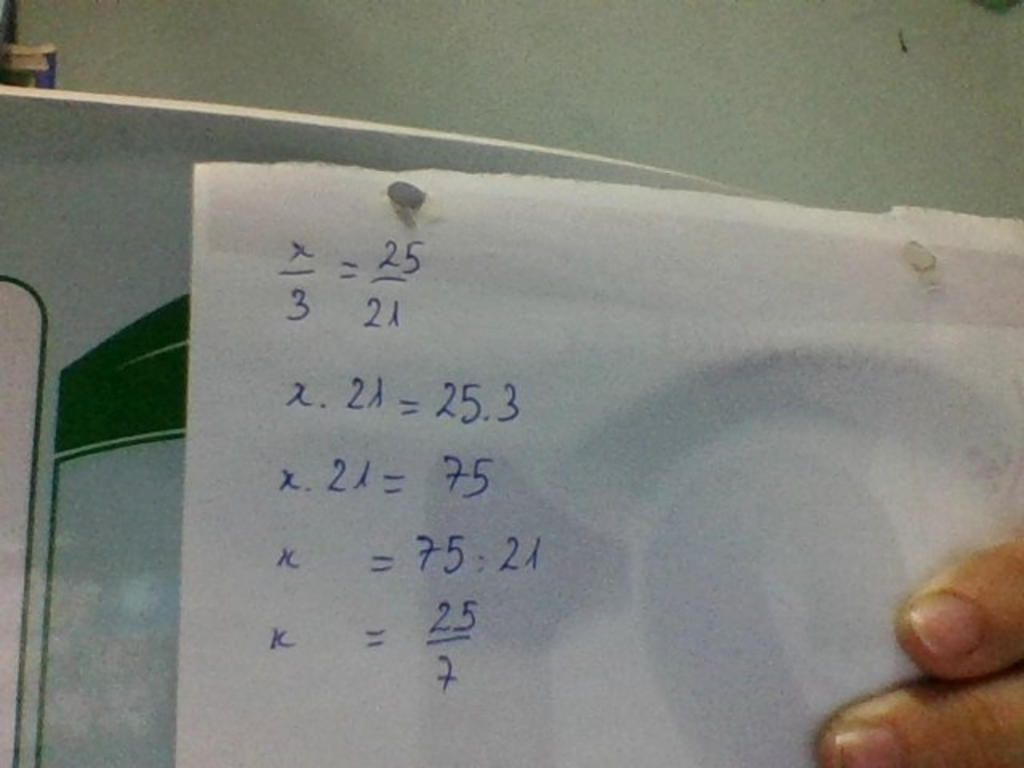 x/3 = 25/21
x . 21 = 25.3
x . 21 = 75
x = 75 : 21
x = 25/7